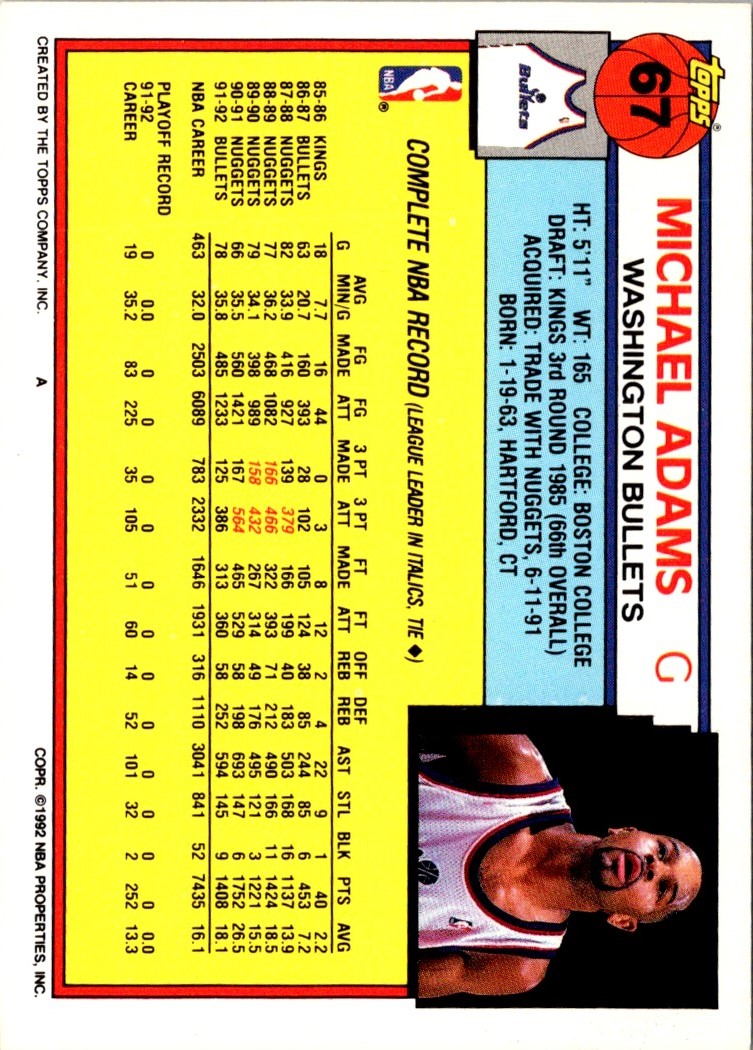 topps®
67
MICHAEL ADAMS G
WASHINGTON BULLETS
Bullets
HT: 5'11" WT: 165 COLLEGE: BOSTON COLLEGE
DRAFT: KINGS 3rd ROUND 1985 (66th OVERALL)
ACQUIRED: TRADE WITH NUGGETS, 6-11-91
BORN: 1-19-63, HARTFORD, CT
NBA ®
COMPLETE NBA RECORD (LEAGUE LEADER IN ITALICS, TIE ◆)
AVG FG FG 3 PT 3 PT FT FT OFF DEF
G MIN/G MADE ATT MADE ATT MADE ATT REB REB AST STL BLK PTS AVG
85-86 KINGS 18 7.7 16 44 0 3 8 12 2 4 22 9 1 40 2.2
86-87 BULLETS 63 20.7 160 393 28 102 105 124 38 85 244 85 6 453 7.2
87-88 NUGGETS 82 33.9 416 927 139 379 166 199 40 183 503 168 16 1137 13.9
88-89 NUGGETS 77 36.2 468 1082 166 466 322 393 71 212 490 166 11 1424 18.5
89-90 NUGGETS 79 34.1 398 989 158 432 267 314 49 176 495 121 3 1221 15.5
90-91 NUGGETS 66 35.5 560 1421 167 564 465 529 58 198 693 147 6 1752 26.5
91-92 BULLETS 78 35.8 485 1233 125 386 313 360 58 252 594 145 9 1408 18.1
NBA CAREER 463 32.0 2503 6089 783 2332 1646 1931 316 1110 3041 841 52 7435 16.1
PLAYOFF RECORD
91-92 0 0.0 0 0 0 0 0 0 0 0 0 0 0 0 0.0
CAREER 19 35.2 83 225 35 105 51 60 14 52 101 32 2 252 13.3
CREATED BY THE TOPPS COMPANY, INC. A COPR. ©1992 NBA PROPERTIES, INC.